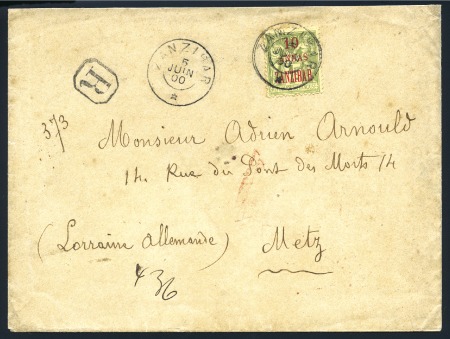 ZANZIBAR
5
JUIN
00
ZANZIBAR
10
ANNAS
ZANZIBAR
R
373
Monsieur Adrien Arnould
14. Rue du Pont des Morts 14
(Lorraine Allemande) Metz
436